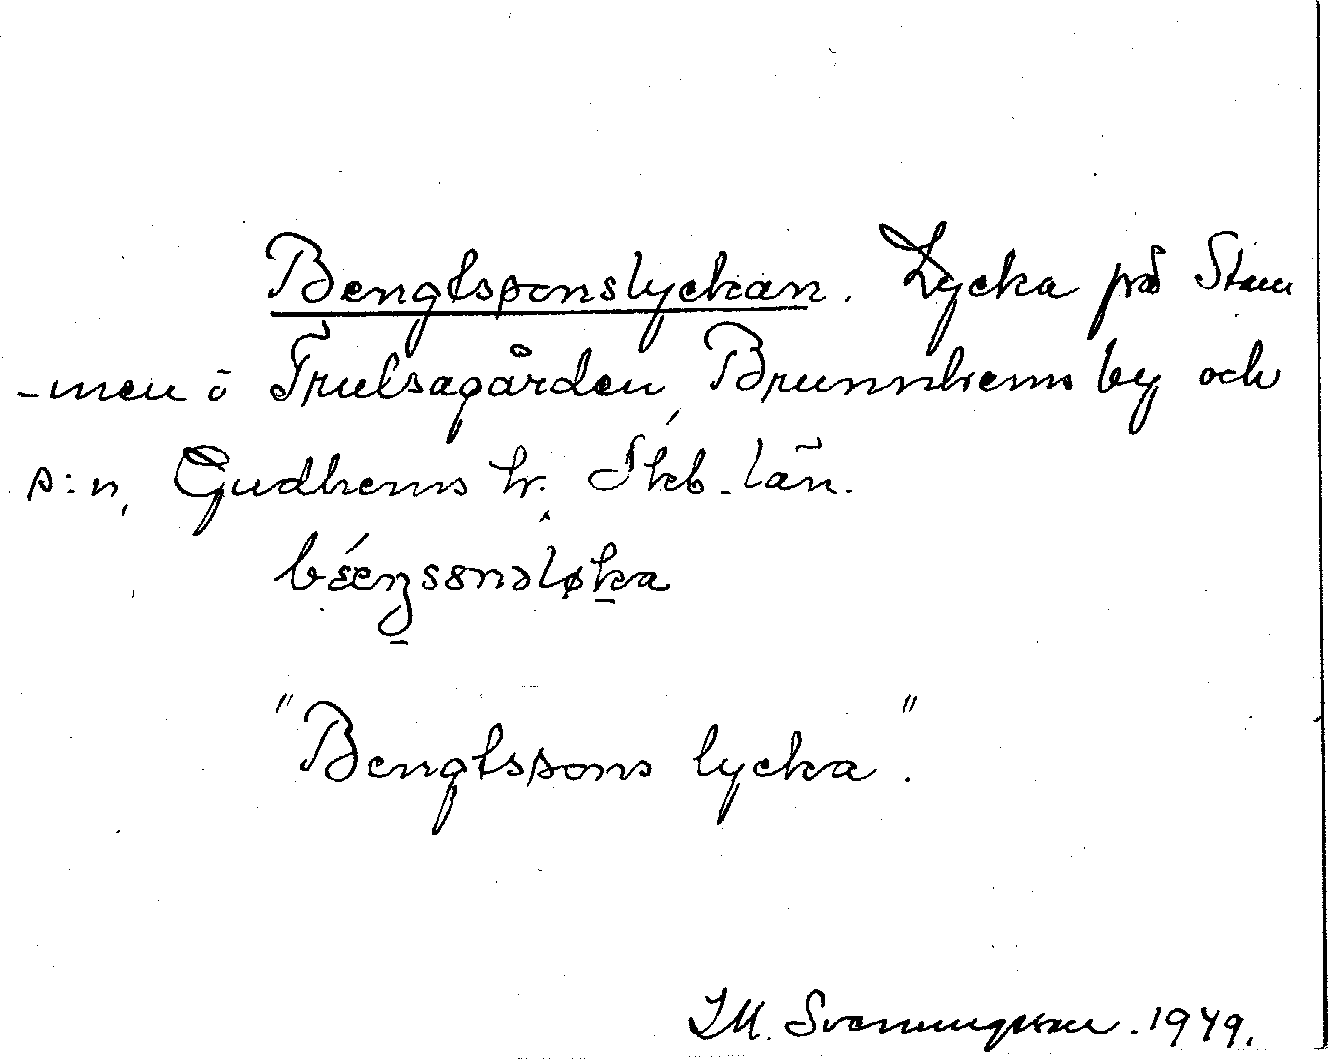 Bengtssonslyckan. Lycka på Stam
-men i Trulsagården, Brunnhems by och
s:n, Gudhems hr. Skb. län.
"Bengtssons lycka".
I.M. Svenningsson. 1949.